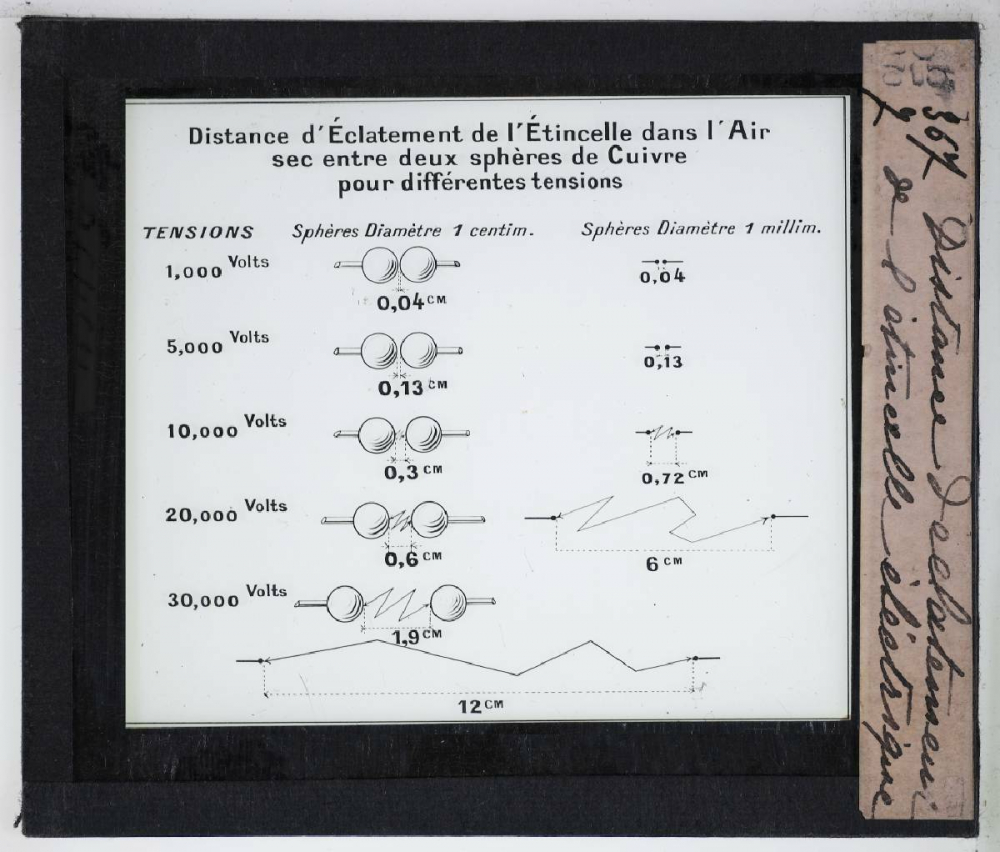 Distance d'Éclatement de l'Étincelle dans l'Air
sec entre deux sphères de Cuivre
pour différentes tensions
TENSIONS Sphères Diamètre 1 centim. Sphères Diamètre 1 millim.
1,000 Volts
0,04 CM 0,04
5,000 Volts
0,13 CM 0,13
10,000 Volts
0,3 CM 0,72 CM
20,000 Volts
0,6 CM 6 CM
30,000 Volts
1,9 CM
12 CM
367 Distance d'eclatement
de l'étincelle électrique